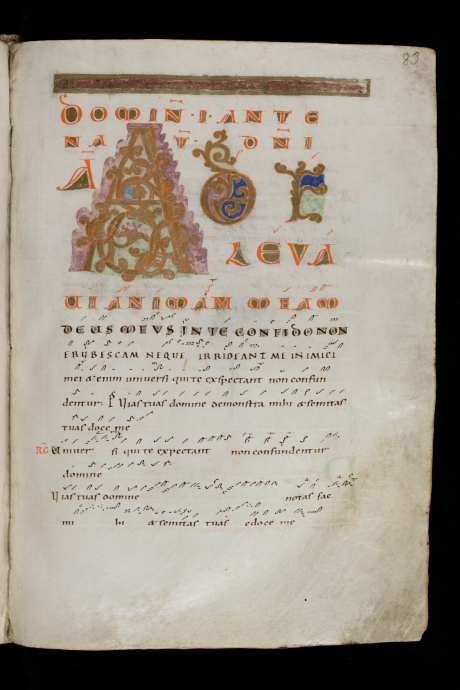 83
DOMIN̄·I·ANTE
NAT̄·DN̄I
AD TE
LEVA
VI ANIMAM MEAM
DEUS MEVS IN TE CONFIDO NON
ERVBESCAM NEQUE IRRIDEANT ME INIMICI
mei & enim universi qui te expectant non confun
dentur. Vias tuas domine demonstra mihi & semitas
tuas doce me
Univer si qui te expectant non confundentur
domine
Vias tuas domine notas fac
mi hi & semitas tuas edoce me